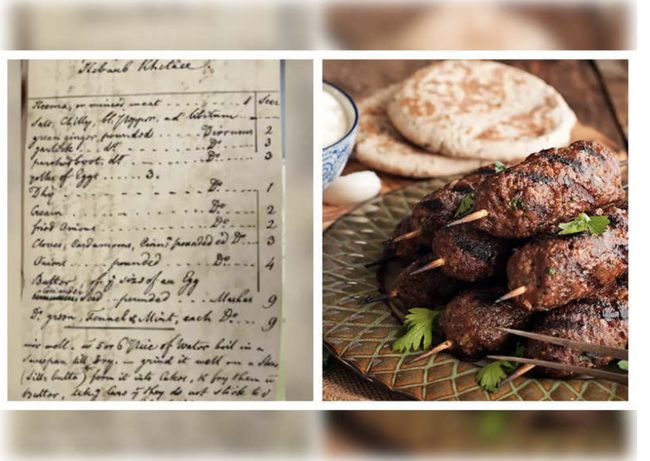 Kebaub Khetaee
Keema, or minced meat . . . . . . . . 1 Seer
Salt, Chilly, bl. Pepper, ad libitum
green ginger, pounded . . . . Dirrums 2
garlick . . do . . . . . . . . Do . . . . 3
do . . . . . . . . . . . . . 3
yolks of Eggs . . . . 3.
Dhy . . . . . . . . . . . . Do . . . . 1
Cream . . . . . . . . . . . Do . . . . 2
fried Onions . . . . . . . . Do . . . . 2
Cloves, Cardamoms, pounded ea Do . . . 3
Onions . . . . pounded . . . . Do . . . . 4
Butter . . of ye size of an Egg
Coriander Seed . . pounded . . . . Mashas 9
Do green, Fennel & Mint, each Do . . . . 9
mix well, in 5 or 6 Pice of Water boil in a
Saucepan till dry. grind it well on a Stone
(Sill & butta) form it into Cakes, & fry them in
Butter, taking Care ye they do not stick to